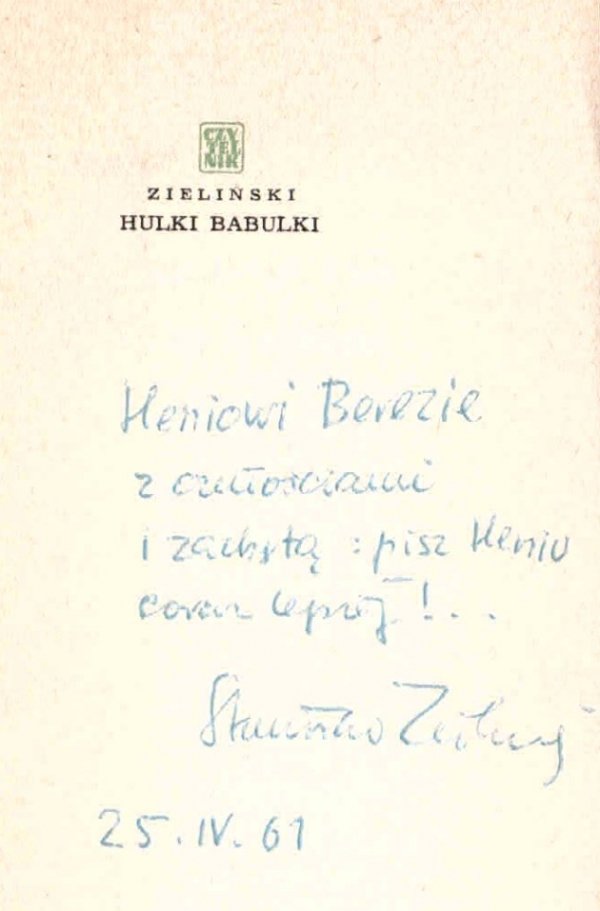 CZY
TEL
NIK
ZIELIŃSKI
HULKI BABULKI
Heniowi Berezie
z czułościami
i zachętą : pisz Heniu
coraz lepiej ! . . .
Stanisław Zieliński
25. IV. 61